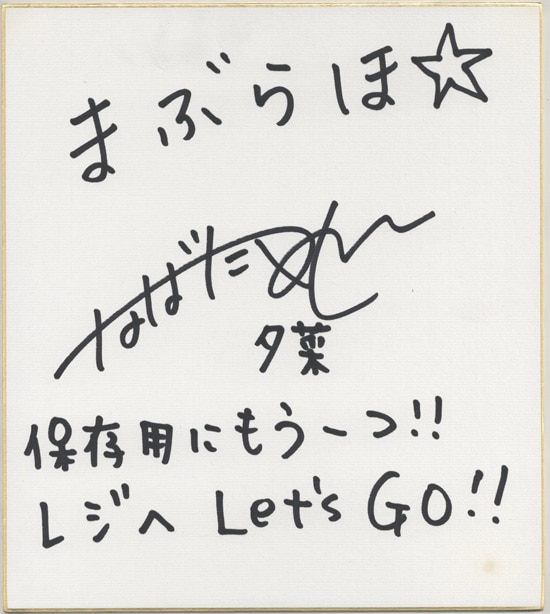 まぶらほ☆
なばためし
夕菜
保存用にもう一つ!!
レジへ Let's GO!!